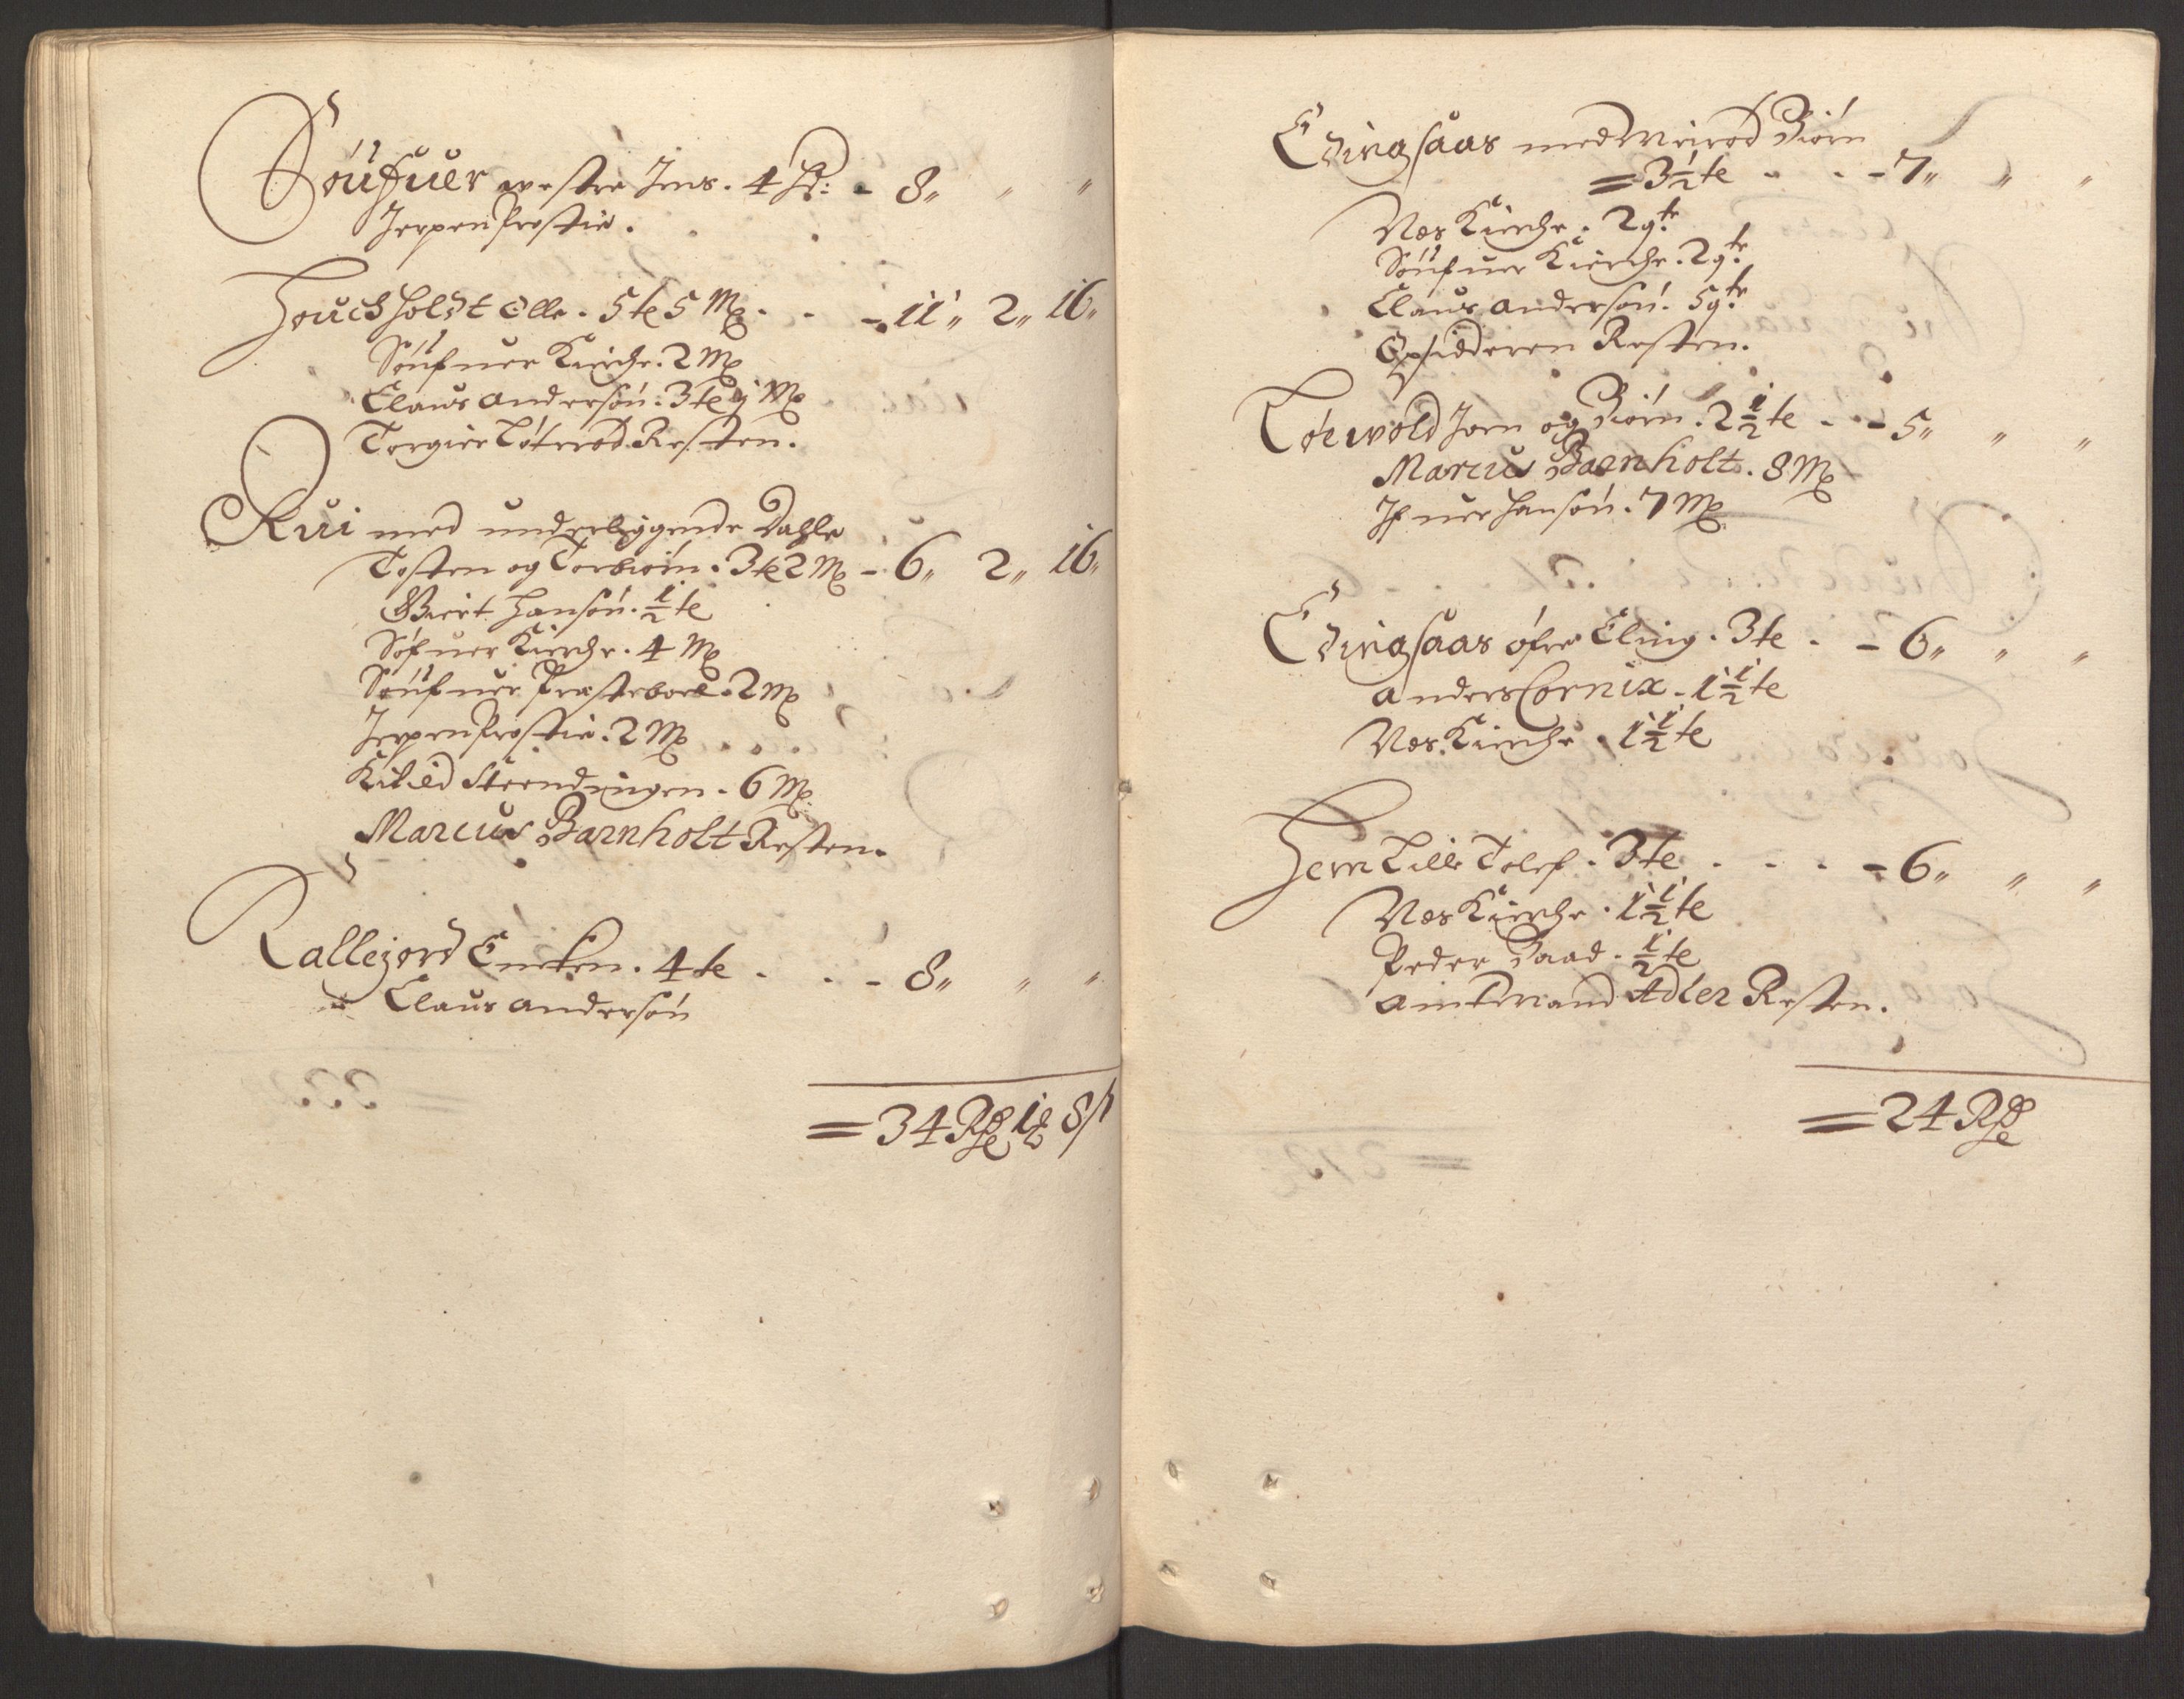 Söufuer westre Jens . 4 H: - 8,, ,, ,,
Jerpen Prestie .
Houchholdt Olle . 5 te 5 M . . - 11,, 2,, 16,,
Söufuer Kirche . 2 M
Claus Andersøn . 3 te 9 M
Torgier Løterød Resten .
Rui med underliggende Dahle
Tosten og Torbiørn . 3 te 2 M - 6,, 2,, 16,,
Giert Hansøn . ½ te
Søfuer Kirche . 4 M
Söufuer Prestebord . 2 M
Jerpen Prestie . 2 M
Kitild Steendingen . 6 M
Marcus Barnholt Resten .
Kallejord Encken . 4 te . . - 8,, ,, ,,
Claus Andersøn
= 34 Rd 1 8 s
Edingsaas med Biørn
= 3½ te . . - 7,, ,, ,,
Nes Kirche . 2 qtr
Söufuer Kirche . 2 qtr
Claus Andersøn . 5 qtr
Opsidderen Resten .
Torn og Biørn . 2½ te . - 5,, ,, ,,
Marcus Barnholt . 8 M
Jfuer Hansøn . 7 M
Edingsaas øfre Eling . 3 te . - 6,, ,, ,,
Anders Cornix . 1½ te
Nes Kirche . 1½ te
Hem Lille Tolef . 3 te . . . - 6,, ,, ,,
Nes Kirche . 1½ te
Peder Baad . ½ te
Amtmand Adler Resten .
= 24 Rd